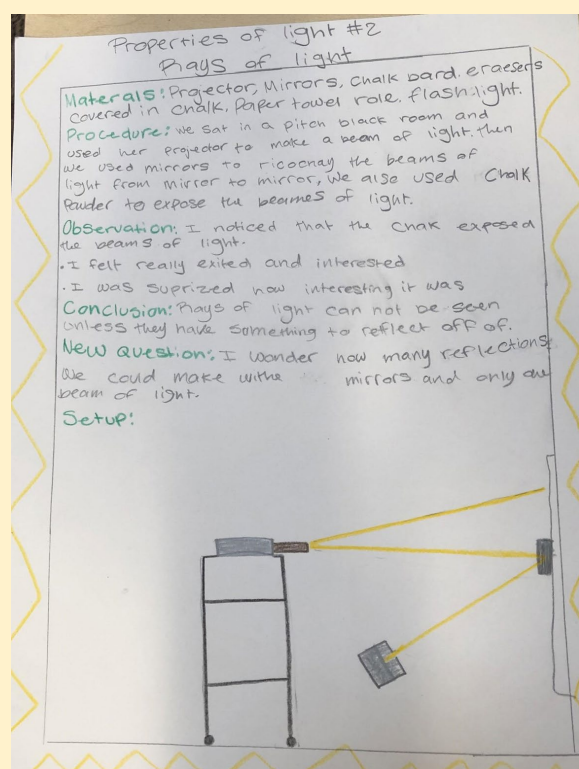 Properties of light #2
Rays of light
Materals: Projector, Mirrors, Chalk bard. eraesers
covered in chalk. Paper towel role. flash light.
Procedure: we sat in a pitch black room and
used her projector to make a beam of light. then
we used mirrors to ricochay the beams of
light from mirror to mirror, we also used Chalk
Powder to expose the beames of light.
Observation: I noticed that the chak exposed
the beams of light.
• I felt really exited and interested
• I was suprized how interesting it was
Conclusion: Rays of light can not be seen
unless they have something to reflect off of.
New Question: I wonder how many reflections
we could make withe mirrors and only one
beam of light.
Setup: